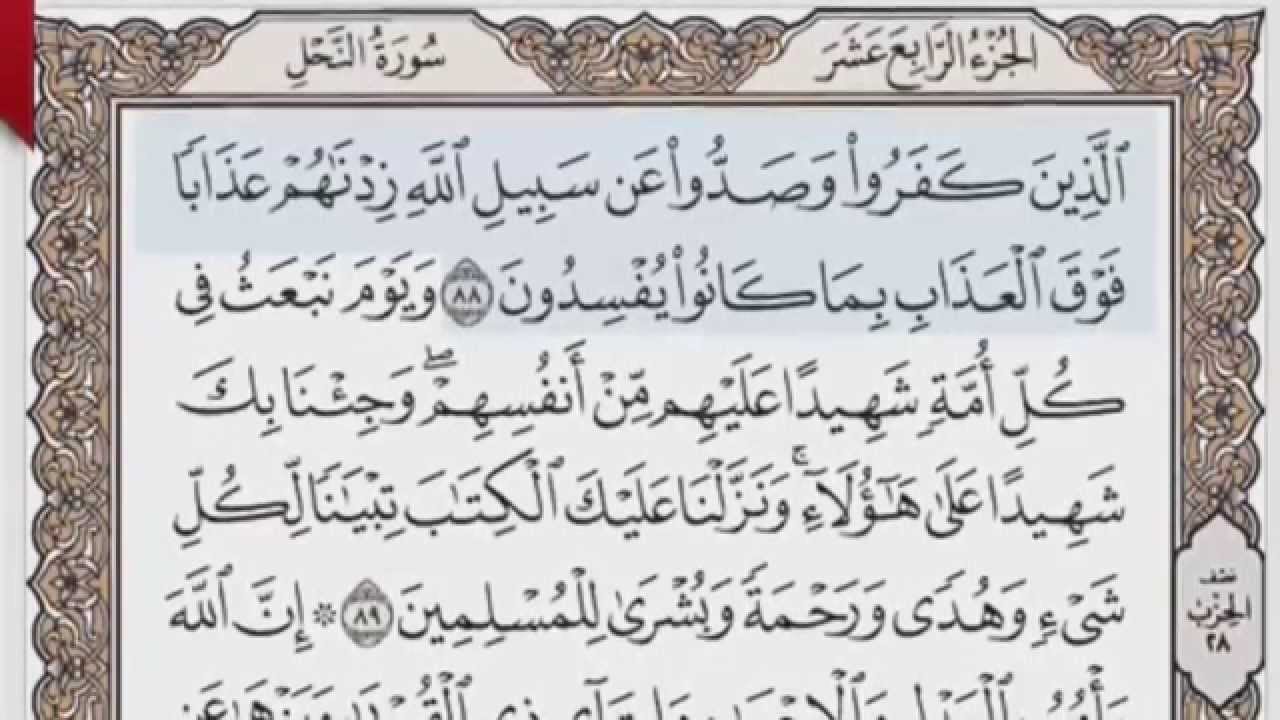 الجُزْءُ الرَّابِعَ عَشَرَ
سُورَةُ النَّحْلِ
ٱلَّذِينَ كَفَرُواْ وَصَدُّواْ عَن سَبِيلِ ٱللَّهِ زِدْنَٰهُمْ عَذَابًا
فَوْقَ ٱلْعَذَابِ بِمَا كَانُواْ يُفْسِدُونَ ٨٨ وَيَوْمَ نَبْعَثُ فِي
كُلِّ أُمَّةٍ شَهِيدًا عَلَيْهِم مِّنْ أَنفُسِهِمْۖ وَجِئْنَا بِكَ
شَهِيدًا عَلَىٰ هَٰٓؤُلَآءِۚ وَنَزَّلْنَا عَلَيْكَ ٱلْكِتَٰبَ تِبْيَٰنًا لِّكُلِّ
شَيْءٍ وَهُدًى وَرَحْمَةً وَبُشْرَىٰ لِلْمُسْلِمِينَ ٨٩ ۞ إِنَّ ٱللَّهَ
نصف
الحِزْب
٢٨